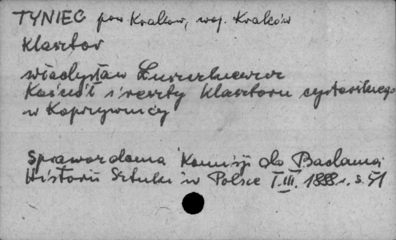 TYNIEC pow Krakow, woj. Kraków
Klasztor
Władysław Łuszczkiewicz
Kościół i reszty klasztoru cysterskiego
w Koprzywnicy
Sprawozdania Komisji do Badania
Historii Sztuki w Polsce T. III. 1888 r. s. 51